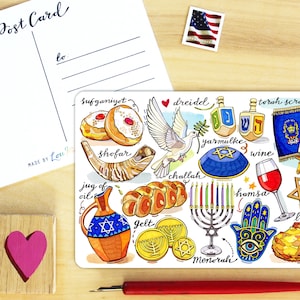 Post Card
to
sufganiyot
dreidel
torah scr
shofar
yarmulke
wine
challah
jug of
oil
hamsa
gelt
menorah
MADE BY